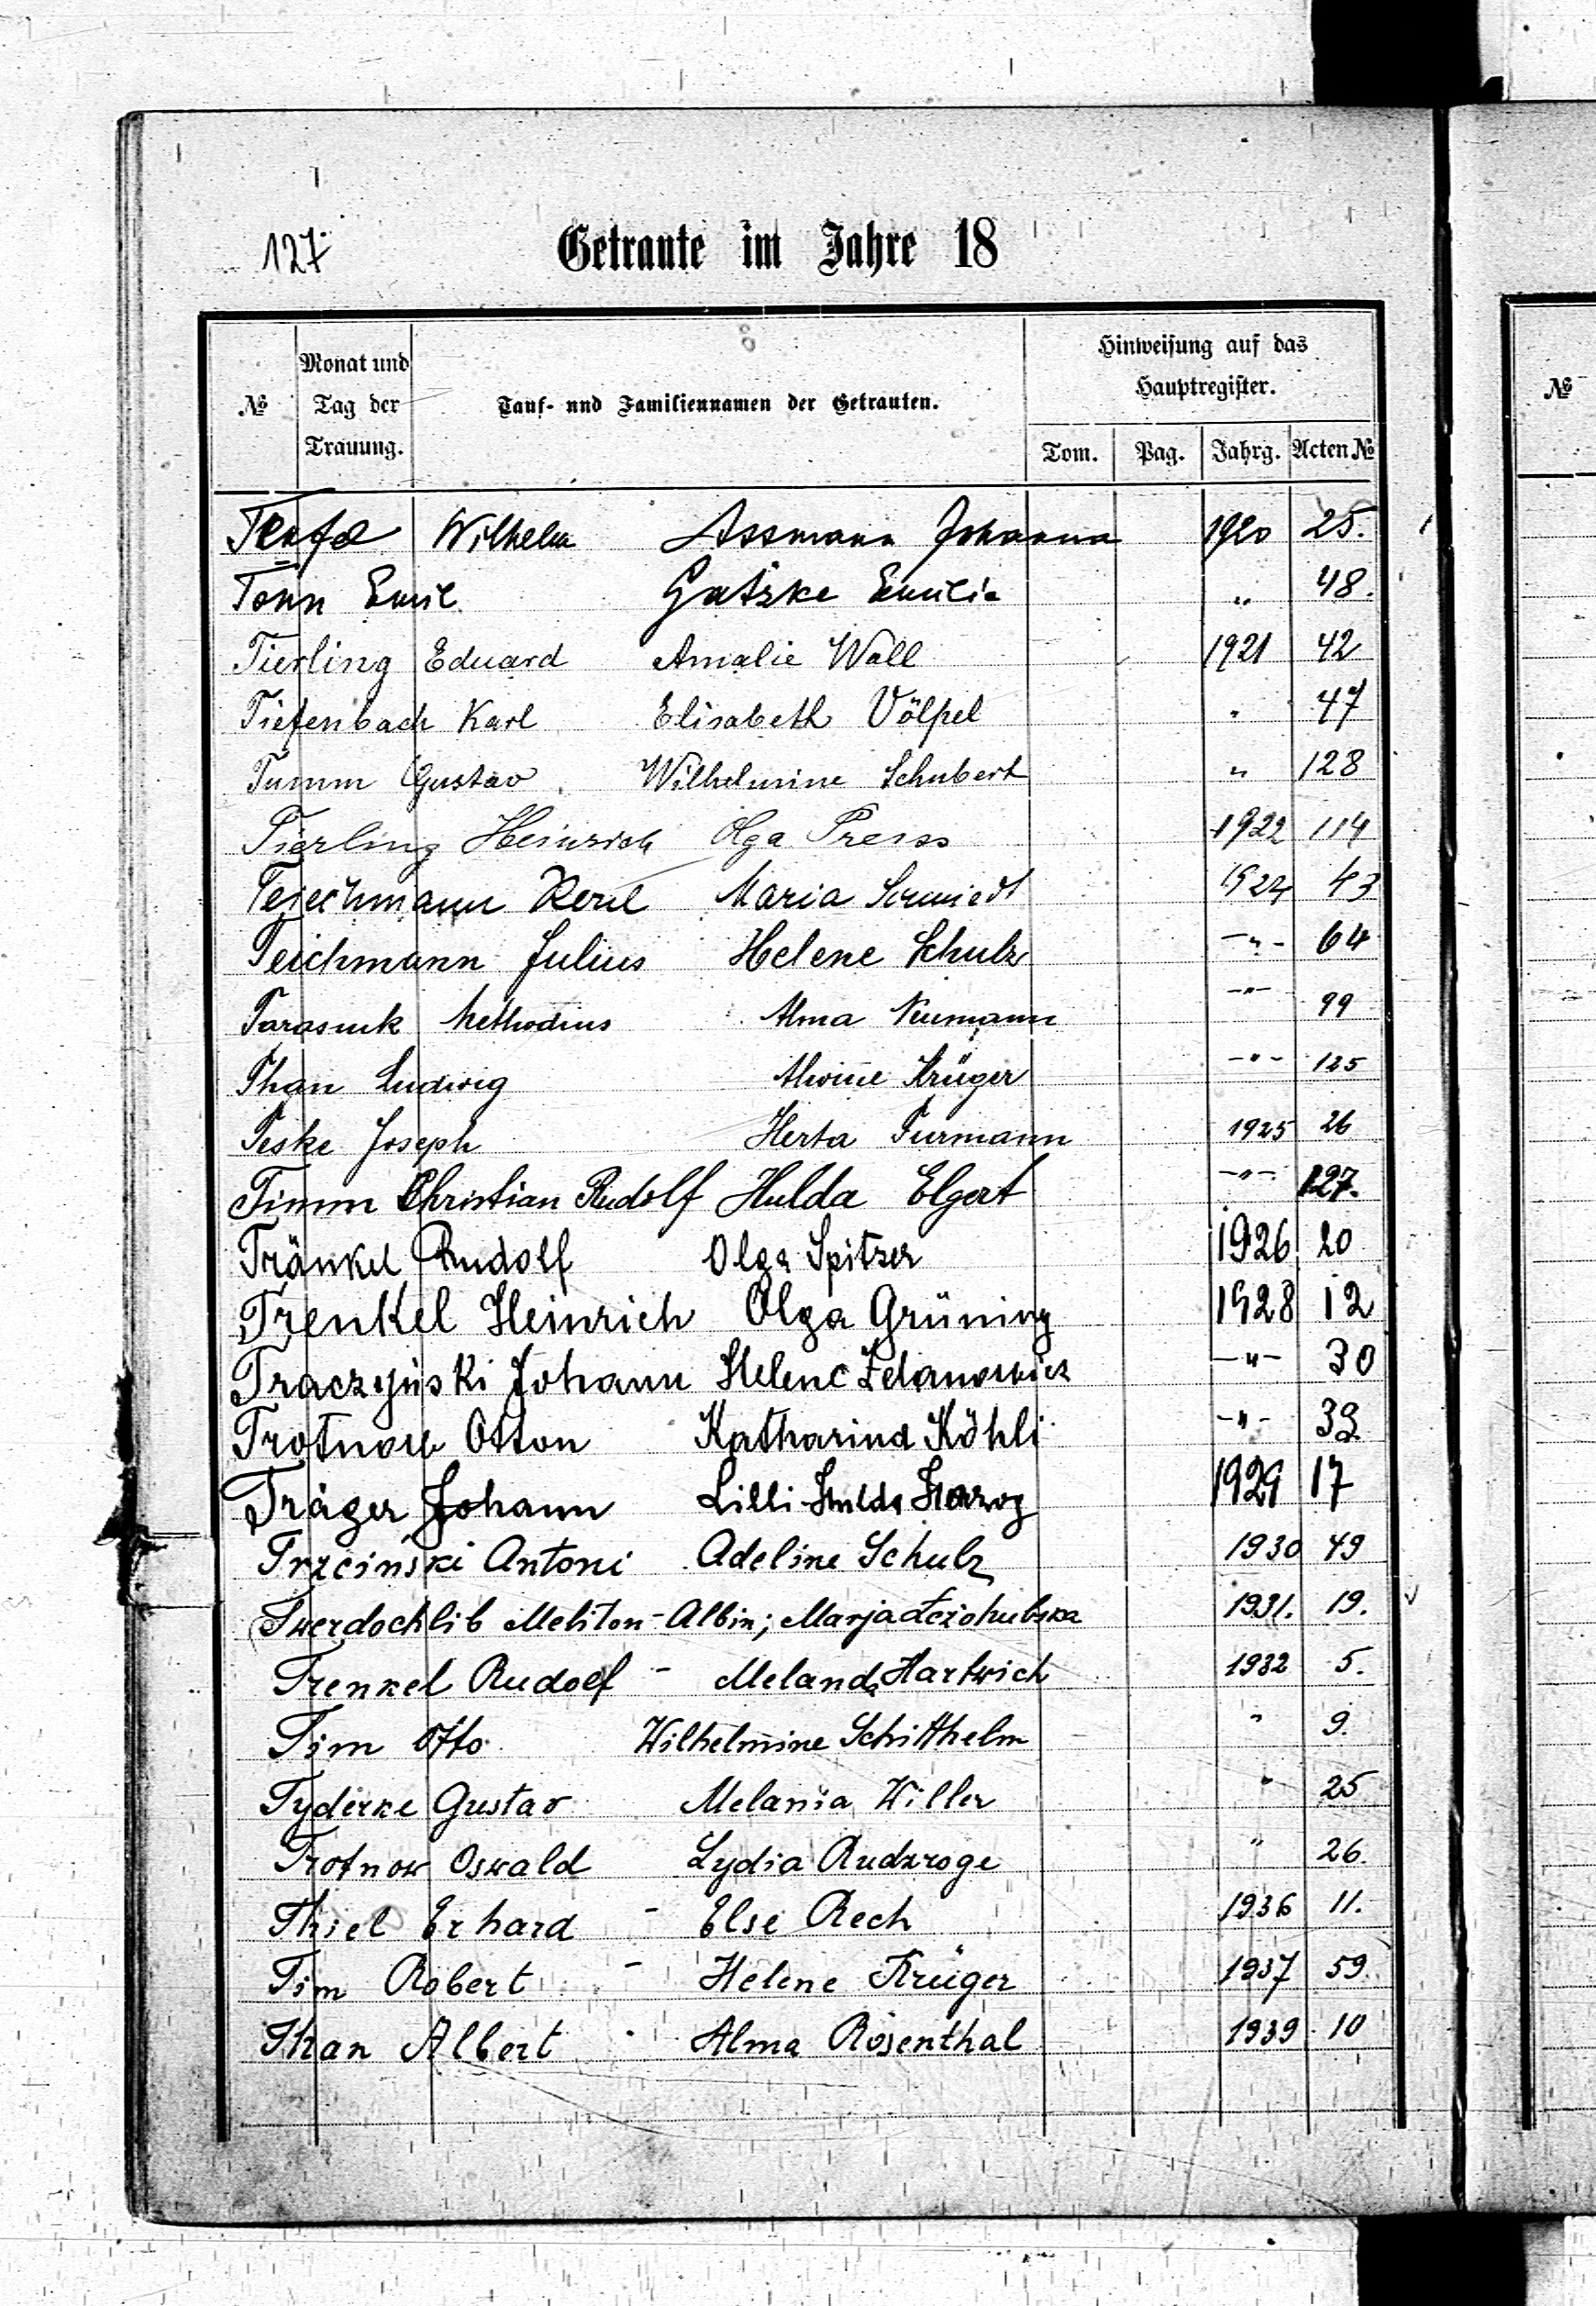 127.
Getraute im Jahre 18
№ Monat und Tag der Trauung. Tauf- und Familiennamen der Getrauten. Hinweisung auf das Hauptregister.
Tom. Pag. Jahrg. Acten №
№
Wilhelm Assmann Johanna 1920 25.
Tonn Emil Gatzke Emilia " 48.
Tierling Eduard Amalie Wall 1921 42
Tiefenbach Karl Elisabeth Völpel " 47
Tumm Gustav Wilhelmine Schubert " 128
Tierling Heinrich Olga Preiss 1922 114
Maria 1924 43
Teichmann Julius Helene Schulz -"- 64
Tarasiuk Methodius Alma Neumann -"- 99
Than Ludwig Alwine Krüger -"- 125
Teske Joseph Herta Furmann 1925 26
Timm Christian Rudolf Hulda Elgert -"- 127.
Tränkel Rudolf Olga Spitzer 1926 20
Trenkel Heinrich Olga Grüning 1928 12
Traczyński Johann Helene -"- 30
Trotnow Otton Katharina Köhli -"- 39
Träger Johann Lilli Hulda Herzog 1929 17
Trzciński Antoni Adeline Schulz 1930 49
Twerdochlib Meliton - Albin; Marja 1931. 19.
Trenkel Rudolf - Melanda Hartwich 1932 5.
Tim Otto Wilhelmine Schitthelm " 9.
Tyderke Gustav Melania Willer " 25
Trotnow Oswald Lydia Rudzroge " 26.
Thiel Erhard - Else Rech 1936 11.
Tim Robert - Helene Krüger 1937 59.
Than Albert - Alma Rosenthal 1939 10